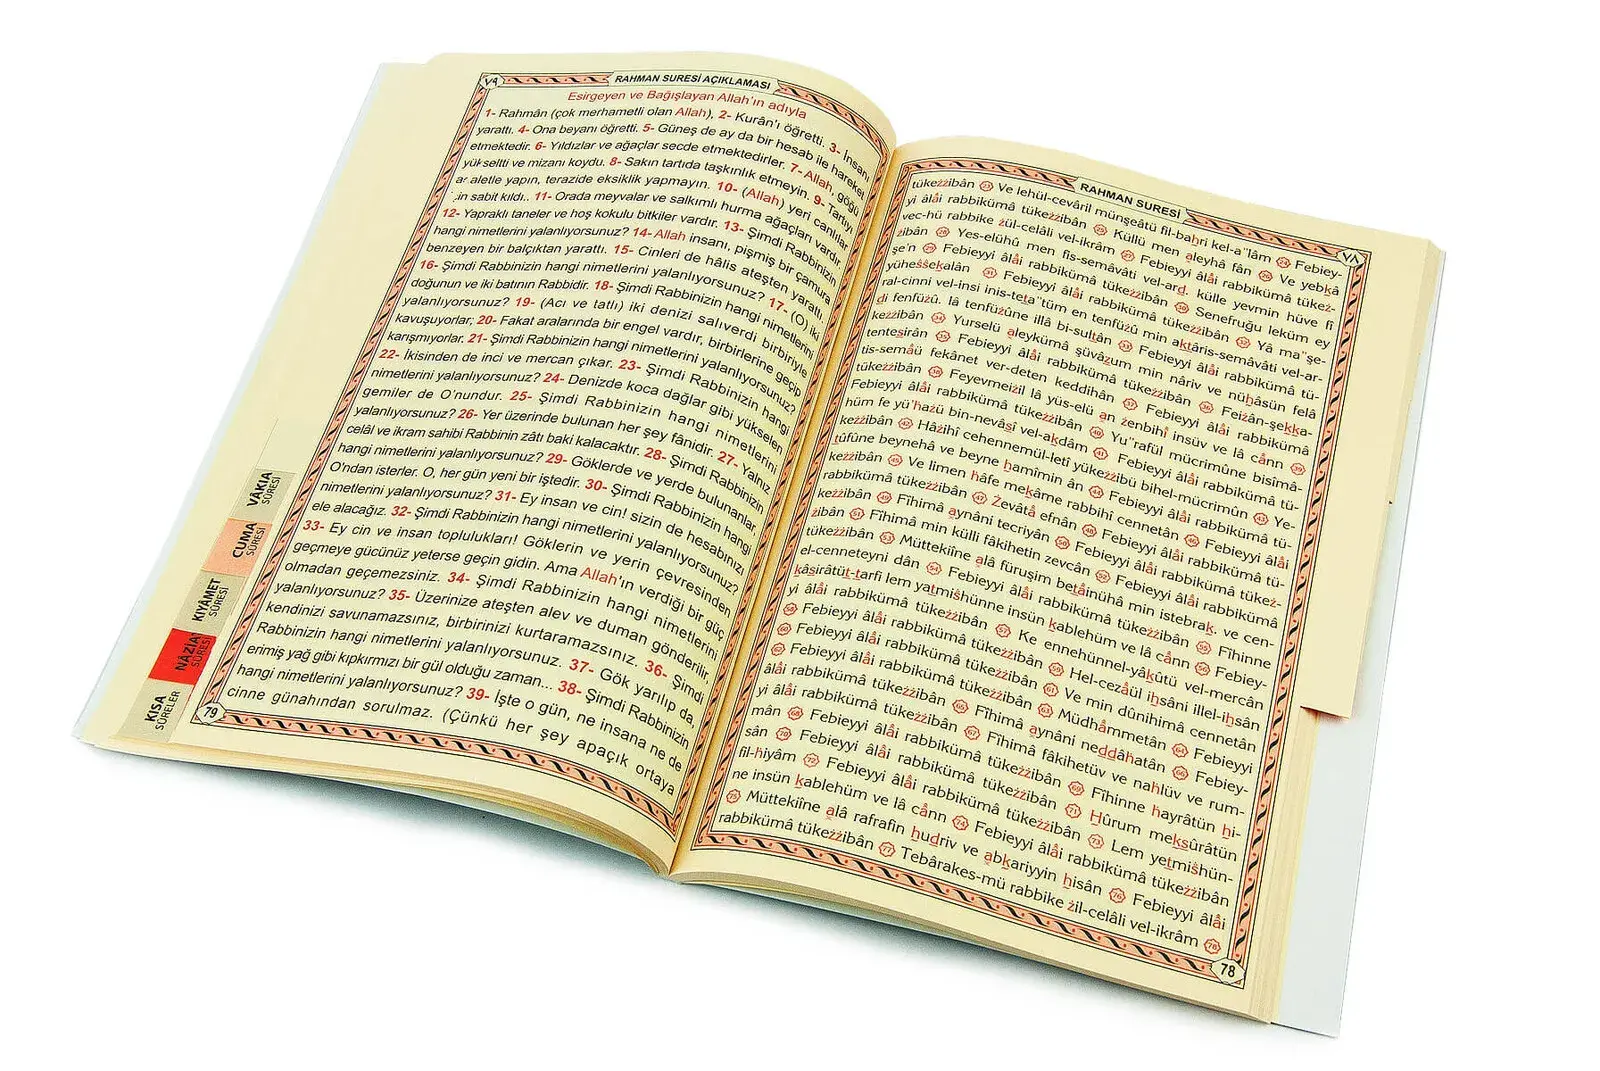 ٧٩
RAHMAN SURESİ AÇIKLAMASI
Esirgeyen ve Bağışlayan Allah'ın adıyla
1- Rahmân (çok merhametli olan Allah), 2- Kurân'ı öğretti. 3- İnsanı
yarattı. 4- Ona beyanı öğretti. 5- Güneş de ay da bir hesab ile hareket
etmektedir. 6- Yıldızlar ve ağaçlar secde etmektedirler. 7- Allah, göğü
yükseltti ve mizanı koydu. 8- Sakın tartıda taşkınlık etmeyin. 9- Tartıyı
ar aletle yapın, terazide eksiklik yapmayın. 10- (Allah) yeri canlılar
in sabit kıldı.. 11- Orada meyvalar ve salkımlı hurma ağaçları vardır
12- Yapraklı taneler ve hoş kokulu bitkiler vardır. 13- Şimdi Rabbinizin
hangi nimetlerini yalanlıyorsunuz? 14- Allah insanı, pişmiş bir çamura
benzeyen bir balçıktan yarattı. 15- Cinleri de hâlis ateşten yarattı.
16- Şimdi Rabbinizin hangi nimetlerini yalanlıyorsunuz? 17- (O) iki
doğunun ve iki batının Rabbidir. 18- Şimdi Rabbinizin hangi nimetlerini
yalanlıyorsunuz? 19- (Acı ve tatlı) iki denizi salıverdi birbiriyle
kavuşuyorlar, 20- Fakat aralarında bir engel vardır, birbirlerine geçip
karışmıyorlar. 21- Şimdi Rabbinizin hangi nimetlerini yalanlıyorsunuz?
22- İkisinden de inci ve mercan çıkar. 23- Şimdi Rabbinizin hangi
nimetlerini yalanlıyorsunuz? 24- Denizde koca dağlar gibi yükselen
gemiler de O'nundur. 25- Şimdi Rabbinizin hangi nimetlerini
yalanlıyorsunuz? 26- Yer üzerinde bulunan her şey fânidir. 27- Yalnız
celâl ve ikram sahibi Rabbinin zâtı baki kalacaktır. 28- Şimdi Rabbinizin
hangi nimetlerini yalanlıyorsunuz? 29- Göklerde ve yerde bulunanlar
O'ndan isterler. O, her gün yeni bir iştedir. 30- Şimdi Rabbinizin hangi
nimetlerini yalanlıyorsunuz? 31- Ey insan ve cin! sizin de hesabınızı
ele alacağız. 32- Şimdi Rabbinizin hangi nimetlerini yalanlıyorsunuz?
33- Ey cin ve insan toplulukları! Göklerin ve yerin çevresinden
geçmeye gücünüz yeterse geçin gidin. Ama Allah'ın verdiği bir güç
olmadan geçemezsiniz. 34- Şimdi Rabbinizin hangi nimetlerini
yalanlıyorsunuz? 35- Üzerinize ateşten alev ve duman gönderilir,
kendinizi savunamazsınız, birbirinizi kurtaramazsınız. 36- Şimdi
Rabbinizin hangi nimetlerini yalanlıyorsunuz. 37- Gök yarılıp da,
erimiş yağ gibi kıpkırmızı bir gül olduğu zaman... 38- Şimdi Rabbinizin
hangi nimetlerini yalanlıyorsunuz? 39- İşte o gün, ne insana ne de
cinne günahından sorulmaz. (Çünkü her şey apaçık ortaya
79
VÂKIA SÛRESİ
CUMA SÛRESİ
KIYÂMET SÛRESİ
NÂZİAT SÛRESİ
KISA SÛRELER
RAHMAN SURESİ
٧٨
tükeżżibân 23 Ve lehül-cevâril münşeâtü fil-bahri kel-a"lâm 24 Febiey-
yi âlâi rabbikümâ tükeżżibân 25 Küllü men aleyhâ fân 26 Ve yebkâ
vec-hü rabbike żül-celâli vel-ikrâm 27 Febieyyi âlâi rabbikümâ tükeż-
żibân 28 Yes-elühû men fis-semâvâti vel-ard. külle yevmin hüve fî
şe'n 29 Febieyyi âlâi rabbikümâ tükeżżibân 30 Senefruğu leküm ey
yühešsekalân 31 Febieyyi âlâi rabbikümâ tükeżżibân 32 Yâ ma"şe-
ral-cinni vel-insi inis-teta"tüm en tenfüżû min aktâris-semâvâti vel-ar-
di fenfüżû. lâ tenfüżûne illâ bi-sultân 33 Febieyyi âlâi rabbikümâ tü-
keżżibân 34 Yurselü aleykümâ şüvâzum min nâriv ve nühâsün felâ
tentesirân 35 Febieyyi âlâi rabbikümâ tükeżżibân 36 Feiżân-şekka-
tis-semâü fekânet ver-deten keddihân 37 Febieyyi âlâi rabbikümâ
tükeżżibân 38 Feyevmeiżil lâ yüs-elü an żenbihî insüv ve lâ cânn 39
Febieyyi âlâi rabbikümâ tükeżżibân 40 Yu"rafül mücrimûne bisîmâ-
hüm fe yü'hażü bin-nevâsî vel-akdâm 41 Febieyyi âlâi rabbikümâ tü-
keżżibân 42 Hâżihî cehennemül-letî yükeżżibü bihel-mücrimûn 43 Ye-
tûfûne beynehâ ve beyne hamîmin ân 44 Febieyyi âlâi rabbikümâ tü-
keżżibân 45 Ve limen hâfe mekâme rabbihî cennetân 46 Febieyyi âlâi
rabbikümâ tükeżżibân 47 Żevâtâ efnân 48 Febieyyi âlâi rabbikümâ tü-
keżżibân 49 Fîhimâ aynâni tecriyân 50 Febieyyi âlâi rabbikümâ tükeż-
żibân 51 Fîhimâ min külli fâkihetin zevcân 52 Febieyyi âlâi rabbikümâ
tükeżżibân 53 Müttekiîne alâ furuşim betâinühâ min istebrak. ve cen-
el-cenneteyni dân 54 Febieyyi âlâi rabbikümâ tükeżżibân 55 Fîhinne
kâsirâtüt-tarfi lem yatmišhünne insün kablehüm ve lâ cânn 56 Febiey-
yi âlâi rabbikümâ tükeżżibân 57 Ke ennehünnel-yâkûtü vel-mercân
58 Febieyyi âlâi rabbikümâ tükeżżibân 59 Hel-cezâül ihsâni illel-ihsân
60 Febieyyi âlâi rabbikümâ tükeżżibân 61 Ve min dûnihimâ cennetân
62 Febieyyi âlâi rabbikümâ tükeżżibân 63 Müdhâmmetân 64 Febieyyi
âlâi rabbikümâ tükeżżibân 65 Fîhimâ aynâni neddâhatân 66 Febiey-
yi âlâi rabbikümâ tükeżżibân 67 Fîhimâ fâkihetüv ve nahlüv ve rum-
mân 68 Febieyyi âlâi rabbikümâ tükeżżibân 69 Fîhinne hayrâtün hi-
sân 70 Febieyyi âlâi rabbikümâ tükeżżibân 71 Hûrum meksûrâtün
fil-hiyâm 72 Febieyyi âlâi rabbikümâ tükeżżibân 73 Lem yetmišhün-
ne insün kablehüm ve lâ cânn 74 Febieyyi âlâi rabbikümâ tükeżżibân
75 Müttekiîne alâ rafrafin hudriv ve abkariyyin hisân 76 Febieyyi âlâi
rabbikümâ tükeżżibân 77 Tebârakes-mü rabbike żil-celâli vel-ikrâm 78
78